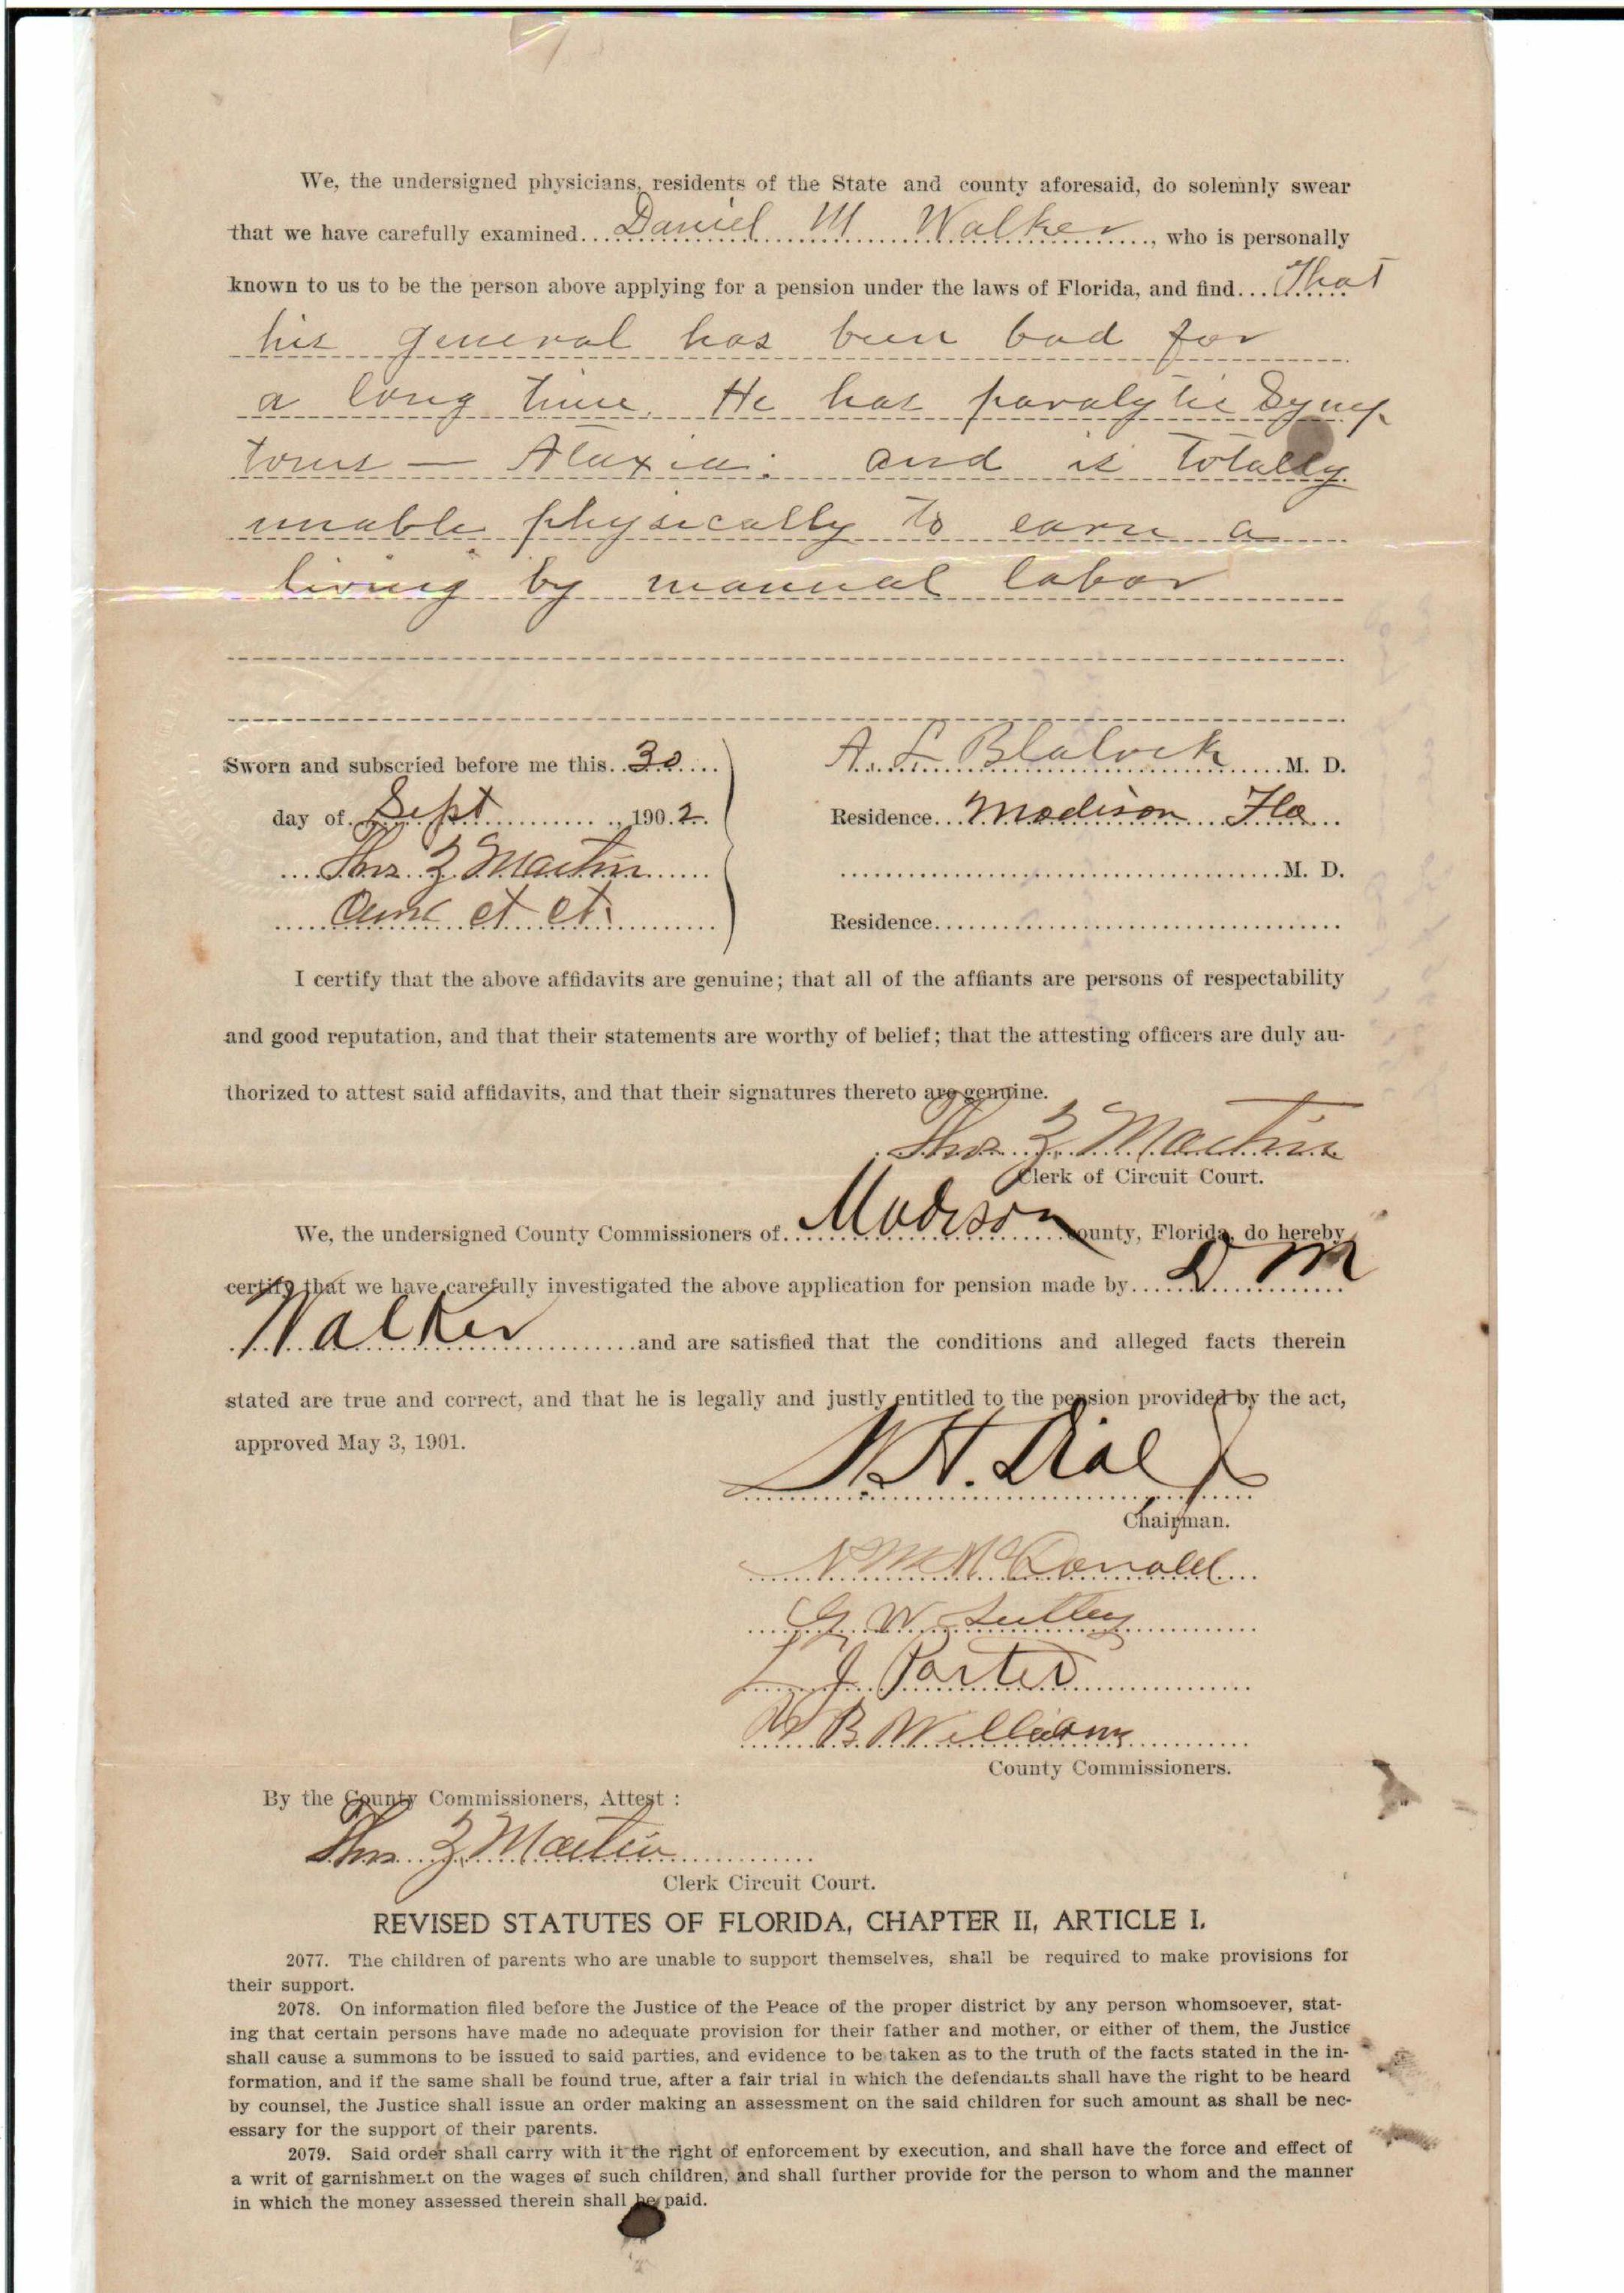 We, the undersigned physicians, residents of the State and county aforesaid, do solemnly swear
that we have carefully examined Daniel M Walker, who is personally
known to us to be the person above applying for a pension under the laws of Florida, and find That
his general has been bad for
a long time. He has paralytic Symp-
toms — Ataxia: and is totally
unable physically to earn a
living by manual labor
Sworn and subscried before me this 30
day of Sept, 1902.
Thos Z Martin
Clerk ct ct.
A. L Blalock M. D.
Residence Madison Fla
M. D.
Residence
I certify that the above affidavits are genuine; that all of the affiants are persons of respectability
and good reputation, and that their statements are worthy of belief; that the attesting officers are duly au-
thorized to attest said affidavits, and that their signatures thereto are genuine.
Thos Z Martin
Clerk of Circuit Court.
We, the undersigned County Commissioners of Madison County, Florida, do hereby
certify that we have carefully investigated the above application for pension made by D M
Walker and are satisfied that the conditions and alleged facts therein
stated are true and correct, and that he is legally and justly entitled to the pension provided by the act,
approved May 3, 1901.
W H. Dial
Chairman.
N M McDonald
G W Sulley
L J Porter
B Williams
County Commissioners.
By the County Commissioners, Attest :
Thos Z Martin
Clerk Circuit Court.
REVISED STATUTES OF FLORIDA, CHAPTER II, ARTICLE I.
2077. The children of parents who are unable to support themselves, shall be required to make provisions for
their support.
2078. On information filed before the Justice of the Peace of the proper district by any person whomsoever, stat-
ing that certain persons have made no adequate provision for their father and mother, or either of them, the Justice
shall cause a summons to be issued to said parties, and evidence to be taken as to the truth of the facts stated in the in-
formation, and if the same shall be found true, after a fair trial in which the defendants shall have the right to be heard
by counsel, the Justice shall issue an order making an assessment on the said children for such amount as shall be nec-
essary for the support of their parents.
2079. Said order shall carry with it the right of enforcement by execution, and shall have the force and effect of
a writ of garnishment on the wages of such children, and shall further provide for the person to whom and the manner
in which the money assessed therein shall be paid.